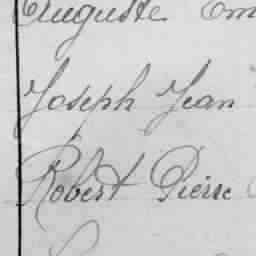 Auguste Em
Joseph Jean
Robert Pierre